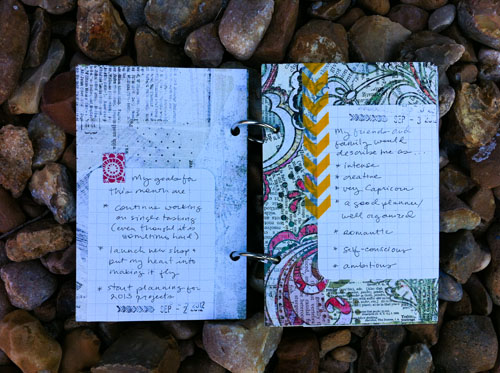 My goals for
this month are
* continue working
on single tasking
(even thought it is
sometimes hard)
* launch new shop +
put my heart into
making it fly
* start planning for
2013 projects
SEP - 2 2012
SEP - 3 2012
My friends and
family would
describe me as...
* intense
* creative
* very Capricorn
* a good planner/
well organized
* romantic
* self-conscious
* ambitious